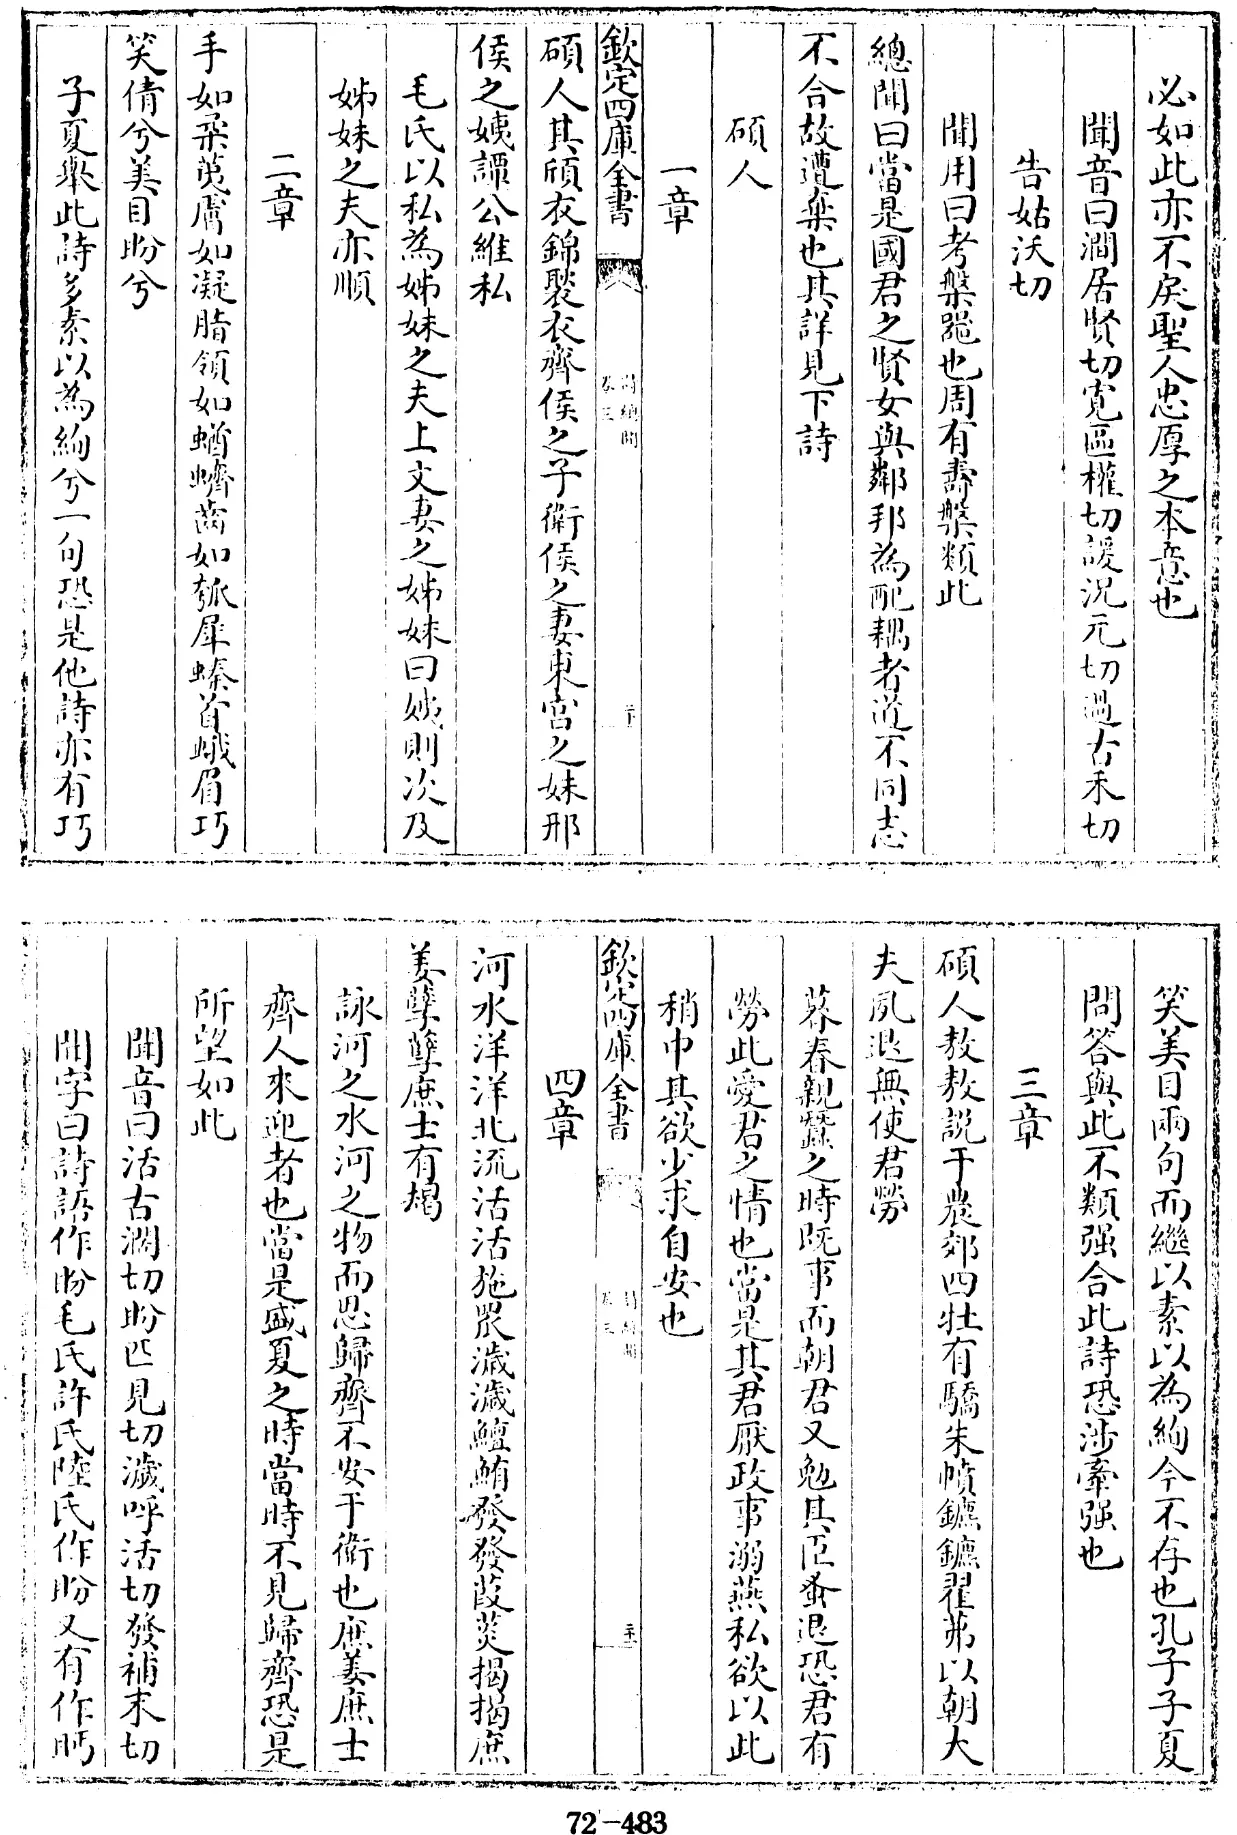 必如此亦不戾聖人忠厚之本意也
聞音曰澗居賢切寛區權切諼況元切邁古禾切
告姑沃切
聞用曰考槃器也周有壽槃類此
總聞曰當是國君之賢女與鄰邦為配耦者道不同志
不合故遭棄也其詳見下詩
碩人
一章
欽定四庫全書
詩總聞
卷三
二十
碩人其頎衣錦褧衣齊侯之子衛侯之妻東宫之妹邢
侯之姨譚公維私
毛氏以私為姊妹之夫上文妻之姊妹曰姨則次及
姊妹之夫亦順
二章
手如柔荑膚如凝脂領如蝤蠐齒如瓠犀螓首蛾眉巧
笑倩兮美目盼兮
子夏舉此詩多素以為絢兮一句恐是他詩亦有巧
笑美目兩句而繼以素以為絢今不存也孔子子夏
問答與此不類强合此詩恐涉牽强也
三章
碩人敖敖說于農郊四牡有驕朱幩鑣鑣翟茀以朝大
夫夙退無使君勞
暮春親蠶之時既事而朝君又勉其臣蚤退恐君有
勞此愛君之情也當是其君厭政事溺燕私欲以此
稍巾其欲少求自安也
欽定四庫全書
詩總聞
卷三
四章
河水洋洋北流活活施罛濊濊鱣鮪發發葭菼揭揭庶
姜孽孽庶士有朅
詠河之水河之物而思歸齊不安于衛也庶姜庶士
齊人來迎者也當是盛夏之時當時不見歸齊恐是
所望如此
聞音曰活古濶切盼匹見切濊呼活切發補末切
聞字曰詩語作盼毛氏許氏陸氏作盼又有作眄
72-483